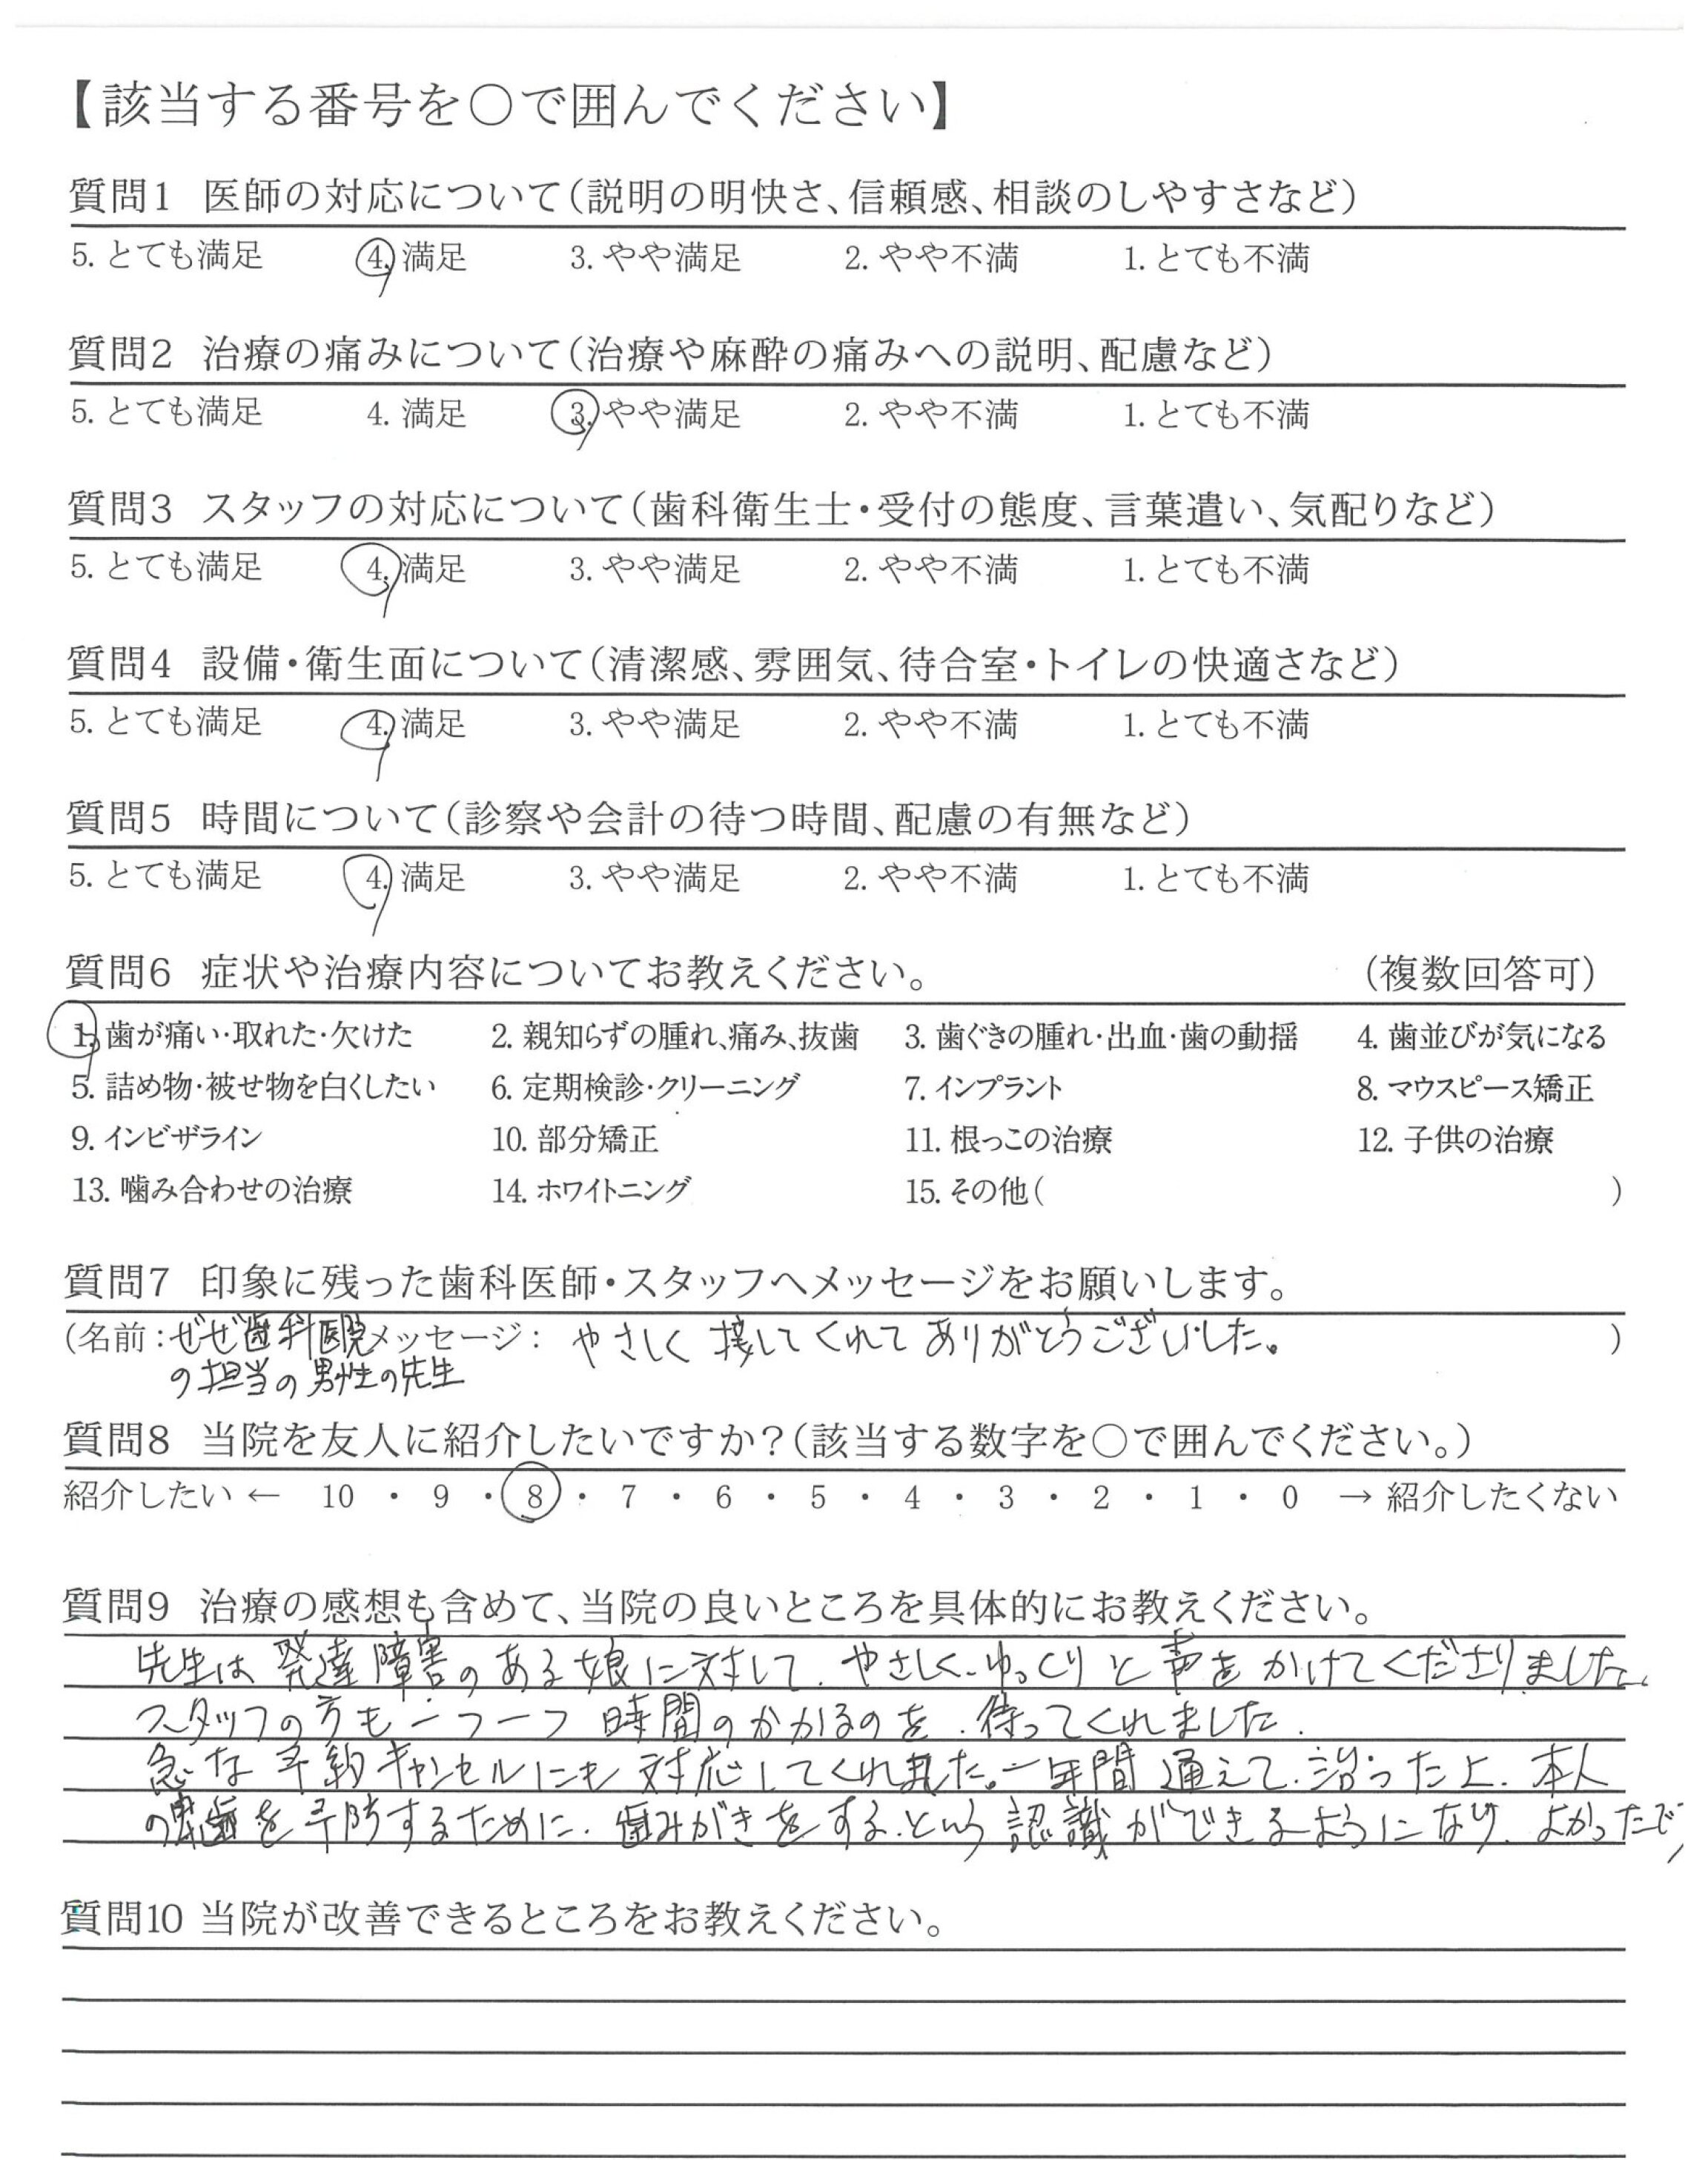 【該当する番号を〇で囲んでください】
質問1 医師の対応について(説明の明快さ、信頼感、相談のしやすさなど)
5. とても満足 4. 満足 3. やや満足 2. やや不満 1. とても不満
質問2 治療の痛みについて(治療や麻酔の痛みへの説明、配慮など)
5. とても満足 4. 満足 3. やや満足 2. やや不満 1. とても不満
質問3 スタッフの対応について(歯科衛生士・受付の態度、言葉遣い、気配りなど)
5. とても満足 4. 満足 3. やや満足 2. やや不満 1. とても不満
質問4 設備・衛生面について(清潔感、雰囲気、待合室・トイレの快適さなど)
5. とても満足 4. 満足 3. やや満足 2. やや不満 1. とても不満
質問5 時間について(診察や会計の待つ時間、配慮の有無など)
5. とても満足 4. 満足 3. やや満足 2. やや不満 1. とても不満
質問6 症状や治療内容についてお教えください。 (複数回答可)
1. 歯が痛い・取れた・欠けた 2. 親知らずの腫れ、痛み、抜歯 3. 歯ぐきの腫れ・出血・歯の動揺 4. 歯並びが気になる
5. 詰め物・被せ物を白くしたい 6. 定期検診・クリーニング 7. インプラント 8. マウスピース矯正
9. インビザライン 10. 部分矯正 11. 根っこの治療 12. 子供の治療
13. 噛み合わせの治療 14. ホワイトニング 15. その他( )
質問7 印象に残った歯科医師・スタッフへメッセージをお願いします。
(名前:ぜぜ歯科医院 メッセージ: やさしく接してくれてありがとうございました。 )
の担当の男性の先生
質問8 当院を友人に紹介したいですか?(該当する数字を〇で囲んでください。)
紹介したい ← 10 ・ 9 ・ 8 ・ 7 ・ 6 ・ 5 ・ 4 ・ 3 ・ 2 ・ 1 ・ 0 → 紹介したくない
質問9 治療の感想も含めて、当院の良いところを具体的にお教えください。
先生は発達障害のある娘に対して、やさしく、ゆっくりと声をかけてくださりました。
スタッフの方も一つ一つ時間のかかるのを、待ってくれました。
急な予約キャンセルにも対応してくれました。一年間通えて、治った上、本人
の虫歯を予防するために、歯みがきをする、という認識ができるようになり、よかったで
質問10 当院が改善できるところをお教えください。